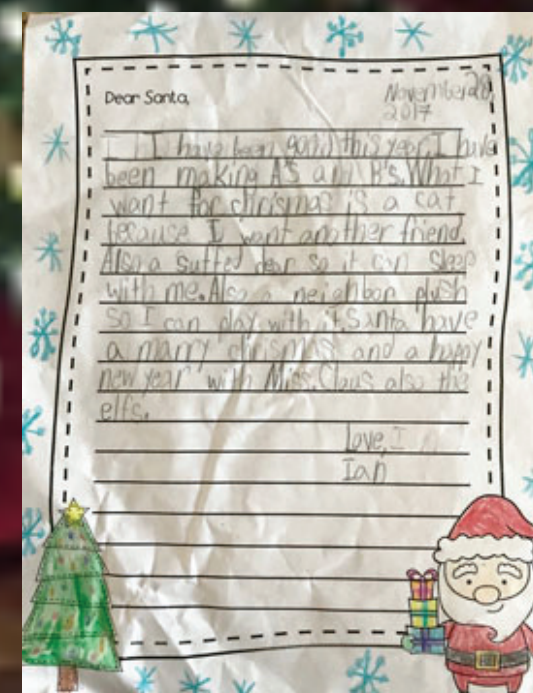 Dear Santa,
November 28,
2017
I have been good this year. I have
been making A's and B's. What I
want for chrismas is a cat
because I want another friend.
Also a suffed bear so it can sleep
with me. Also a neighbor plush
so I can play with it. Santa have
a marry chrismas and a happy
new year with Miss. Claus also the
elfs.
Love, I
Ian